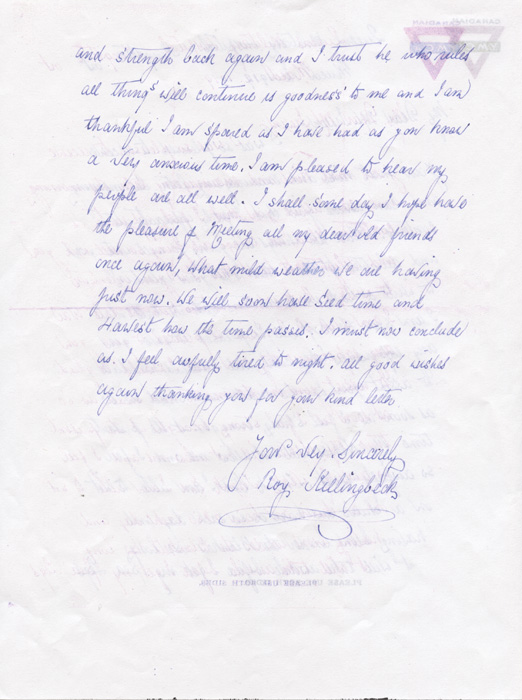 and strength back again and I trust he who rules
all things will continue is goodness to me and I am
thankful I am spared as I have had as you know
a very anxious time. I am pleased to hear my
people are all well. I shall some day I hope have
the pleasure of Meeting all my dear old friends
once again, What mild weather we are having
just now. We will soon have seed time and
Harvest how the time passes. I must now conclude
as. I feel awfully tired to night. all good wishes
again thanking you for your kind letter
Your Very. Sincerely
Roy Killingbeck